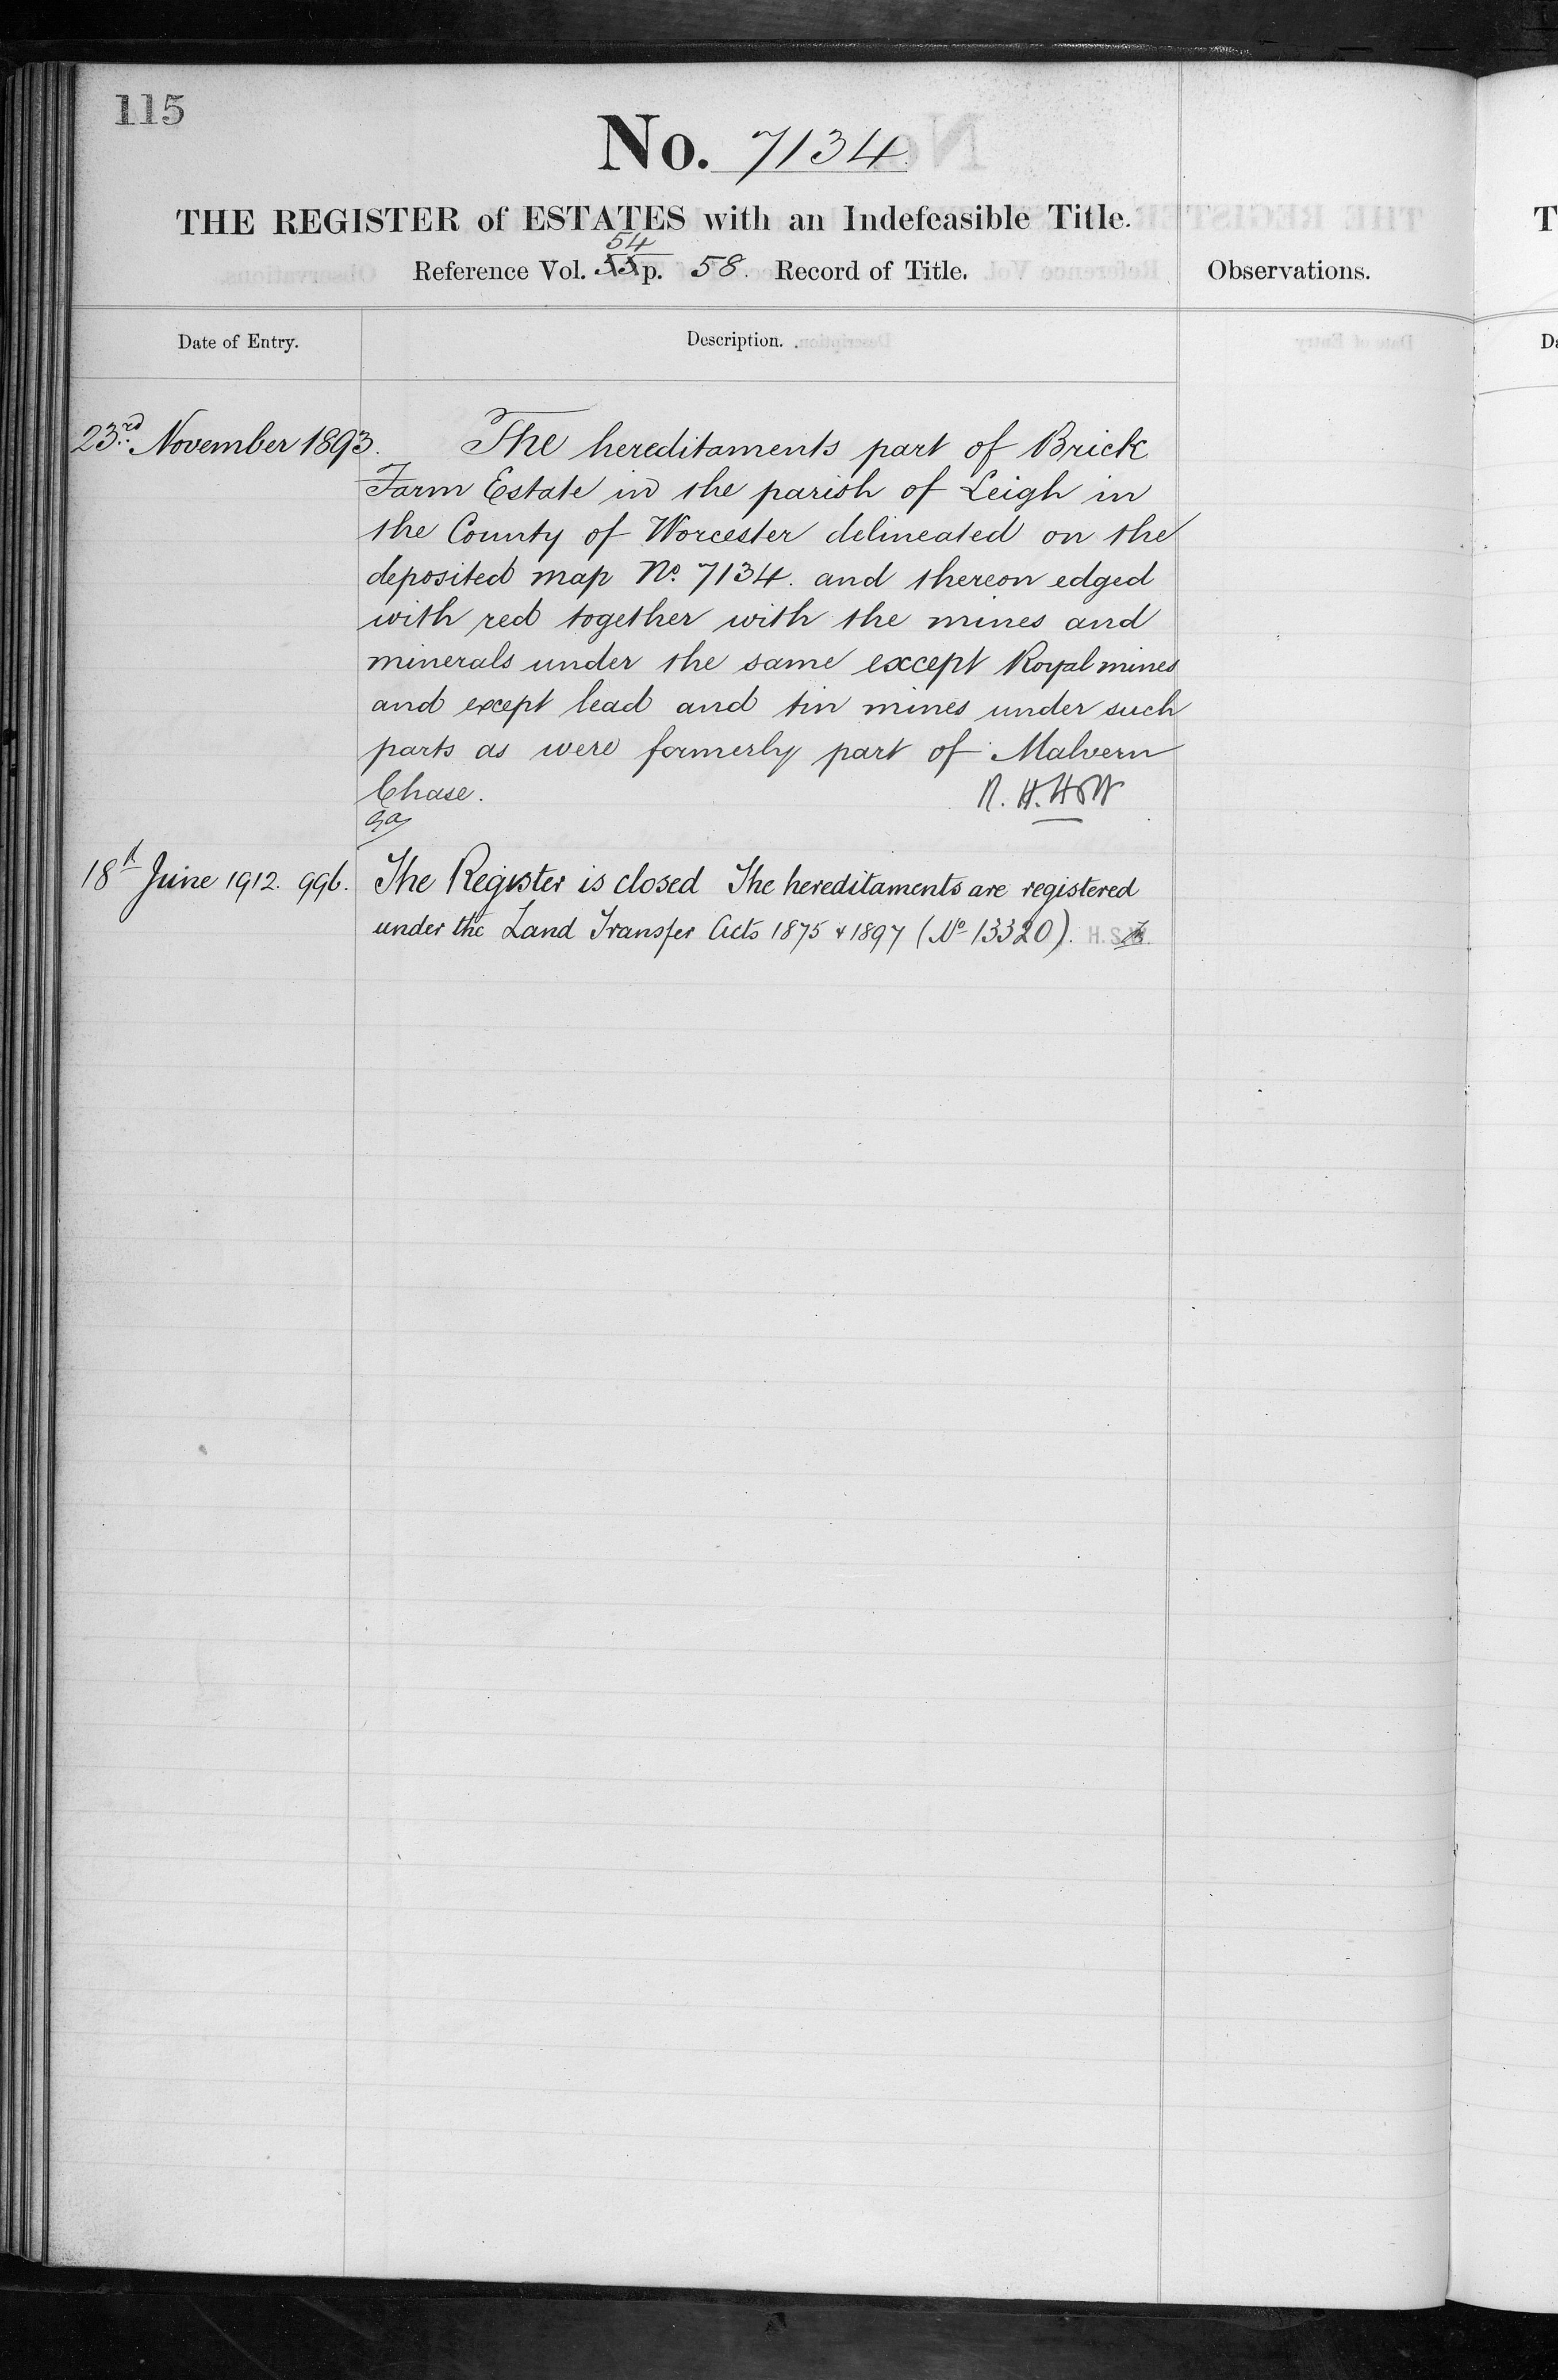 115
No. 7134
THE REGISTER of ESTATES with an Indefeasible Title.
54
Reference Vol. 55 p. 58. Record of Title.
Observations.
Date of Entry.
Description.
23rd November 1893.
The hereditaments part of Brick
Farm Estate in the parish of Leigh in
the County of Worcester delineated on the
deposited map No. 7134. and thereon edged
with red together with the mines and
minerals under the same except Royal mines
and except lead and tin mines under such
parts as were formerly part of Malvern
Chase.
18th June 1912. 996.
The Register is closed The hereditaments are registered
under the Land Transfer Acts 1875 & 1897 (No 13320).